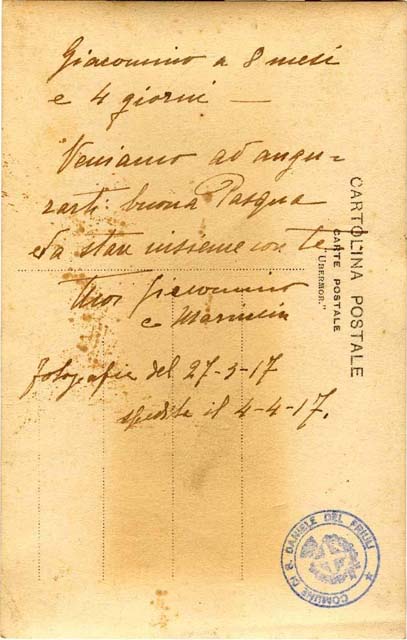 Giacomino a 8 mesi
e 4 giorni —
Veniamo ad augu-
rarti buona Pasqua
e a stare insieme con te
Tuoi Giacomino
e
Fotografia del 27-3-17
spedita il 4-4-17.
CARTOLINA POSTALE
CARTE POSTALE
"UBERMOR."
COMUNE DI S. DANIELE DEL FRIULI